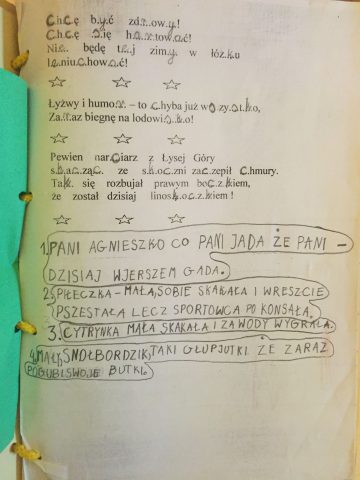 Chcę być zdrowy!
Chcę się hartować!
Nie będę tej zimy w łóżku
leniuchować!
Łyżwy i humor – to chyba już wszystko,
Zaraz biegnę na lodowisko!
Pewien narciarz z Łysej Góry
skacząc ze skoczni zaczepił Chmury.
Tak się rozbujał prawym boczkiem,
że został dzisiaj linoskoczkiem!
1. PANI AGNIESZKO CO PANI JADA ŻE PANI –
DZISIAJ WJERSZEM GADA.
2. PIŁECZKA – MAŁA, SOBIE SKAKAŁA I WRESZCIE
PSZESTAŁA LECZ SPORTOWCA PO KONSAŁA.
3. CYTRYNKA MAŁA SKAKAŁA I ZAWODY WYGRAŁA.
4. MAŁY, SNOŁBORDZIK, TAKI GŁUPJUTKI ŻE ZARAZ
POGUBIŁ SWOJE BUTKI.